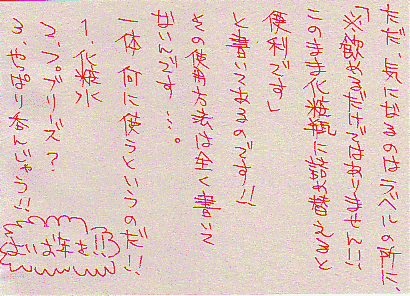 ただ、気になるのはラベルの所に、
「※飲めるだけではありません!!
このまま化粧瓶に詰め替えると
便利です」
と書いてあるのです!!
その使用方法は全く書いて
ないんです…。
一体、何に使うというのだ!!
1、化粧水
2、フブリーズ?
3、やっぱり呑んじゃう!!